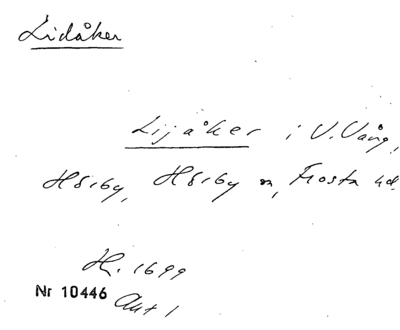 Lidåker
Lijåker i V. Vång,
Hörby, Hörby sn, Frosta hd.
H. 1699
Nr 10446 Akt 1